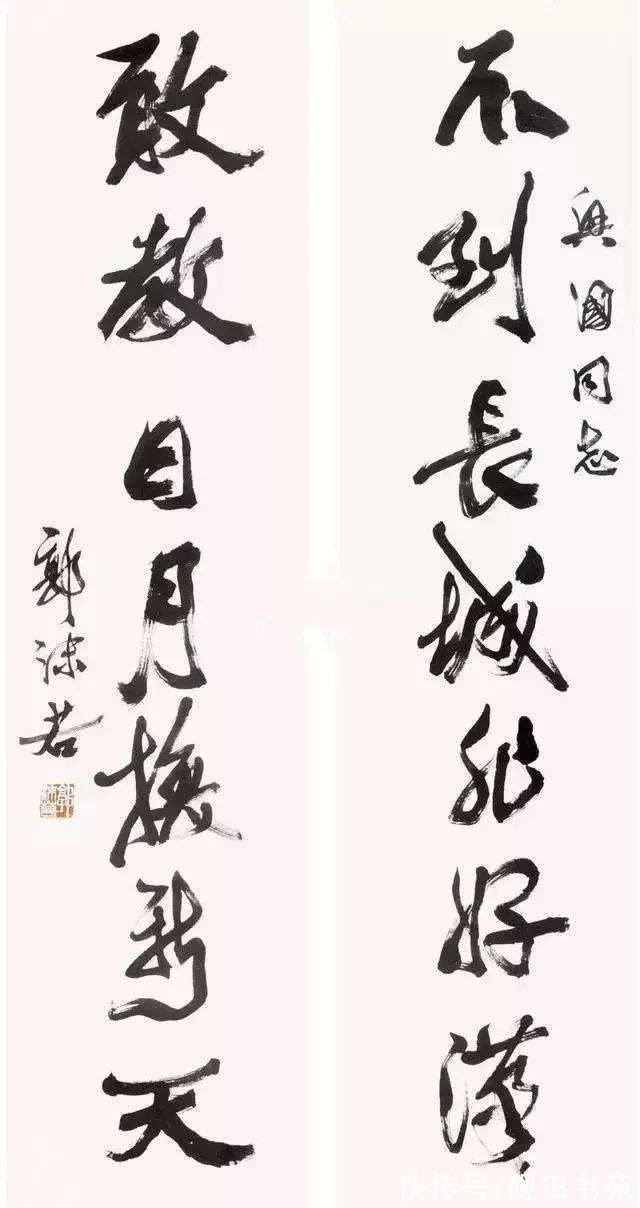 興國同志
不到長城非好漢
敢教日月換新天
郭沫若
快传号/砚田书苑